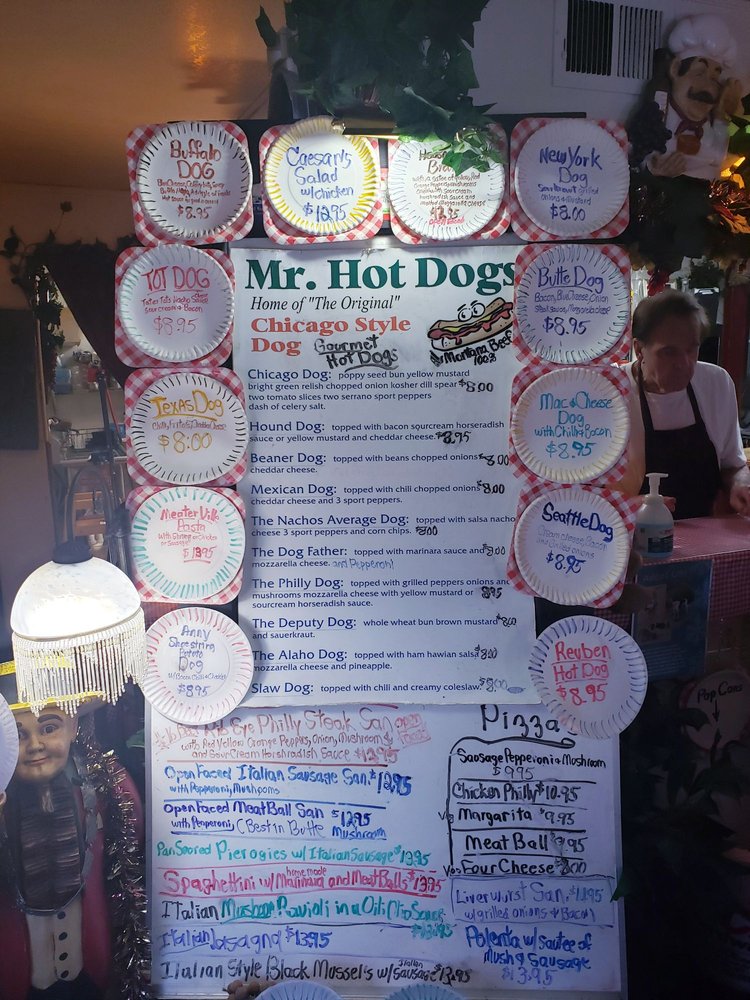 Buffalo
DOG
$8.95
Caesar's
Salad
w/chicken
$12.95
$12.95
New York
Dog
Sourkraut grilled
onions & mustard
$8.00
TOT DOG
Tater Tots Nacho
sour cream & Bacon
$8.95
Butte Dog
Bacon, Blue Cheese, Onion
$8.95
Texas Dog
$8.00
Mac & Cheese
Dog
with Chilli & Bacon
$8.95
Meaterville
Pasta
with Shrimp or Chicken
or Sausage
$13.95
Seattle Dog
Cream cheese, Bacon
$8.95
Anny
Shoestring
Potato
Dog
w/Bacon Chili & Cheese
$8.95
Reuben
Hot Dog
$8.95
Mr. Hot Dogs
Home of "The Original"
Chicago Style
Dog
Gourmet
Hot Dogs
Montana Beef
100%
Chicago Dog: poppy seed bun yellow mustard
bright green relish chopped onion kosher dill spear $8.00
two tomato slices two serrano sport peppers
dash of celery salt.
Hound Dog: topped with bacon sourcream horseradish
sauce or yellow mustard and cheddar cheese. $8.95
Beaner Dog: topped with beans chopped onions $8.00
cheddar cheese.
Mexican Dog: topped with chili chopped onions $8.00
cheddar cheese and 3 sport peppers.
The Nachos Average Dog: topped with salsa nacho
cheese 3 sport peppers and corn chips. $8.00
The Dog Father: topped with marinara sauce and $8.00
mozzarella cheese. and Pepperoni
The Philly Dog: topped with grilled peppers onions and
mushrooms mozzarella cheese with yellow mustard or 8.95
sourcream horseradish sauce.
The Deputy Dog: whole wheat bun brown mustard $8.00
and sauerkraut.
The Alaho Dog: topped with ham hawian salsa $8.00
mozzarella cheese and pineapple.
Slaw Dog: topped with chili and creamy coleslaw. $8.00
Rib Eye Philly Steak San open faced
with Red Yellow Orange Peppers, Onion, Mushroom &
and Sour Cream Horshradish Sauce $13.95
Open Faced Italian Sausage San. $12.95
with Pepperoni, Mushrooms
Open Faced Meat Ball San $12.95
with Pepperoni, (Best in Butte Mushroom
Pan Seared Pierogies w/ Italian Sausage $13.95
Spaghettini w/ homemade Marinara and Meat Balls $13.95
Italian Mushroom Ravioli in a Oil Clip Sauce
$13.95
Italian Lasagna $13.95
Italian Style Black Mussels w/ Italian Sausage $13.95
Pizza
Sausage Pepperoni & Mushroom
$9.95
Chicken Philly $10.95
Margarita $9.95
Meat Ball $9.95
Four Cheese 8.00
Liverwurst San. $11.95
w/ grilled onions & Bacon
Polenta w/ sautee of
Mush & Sausage
$13.95
Pop Cans